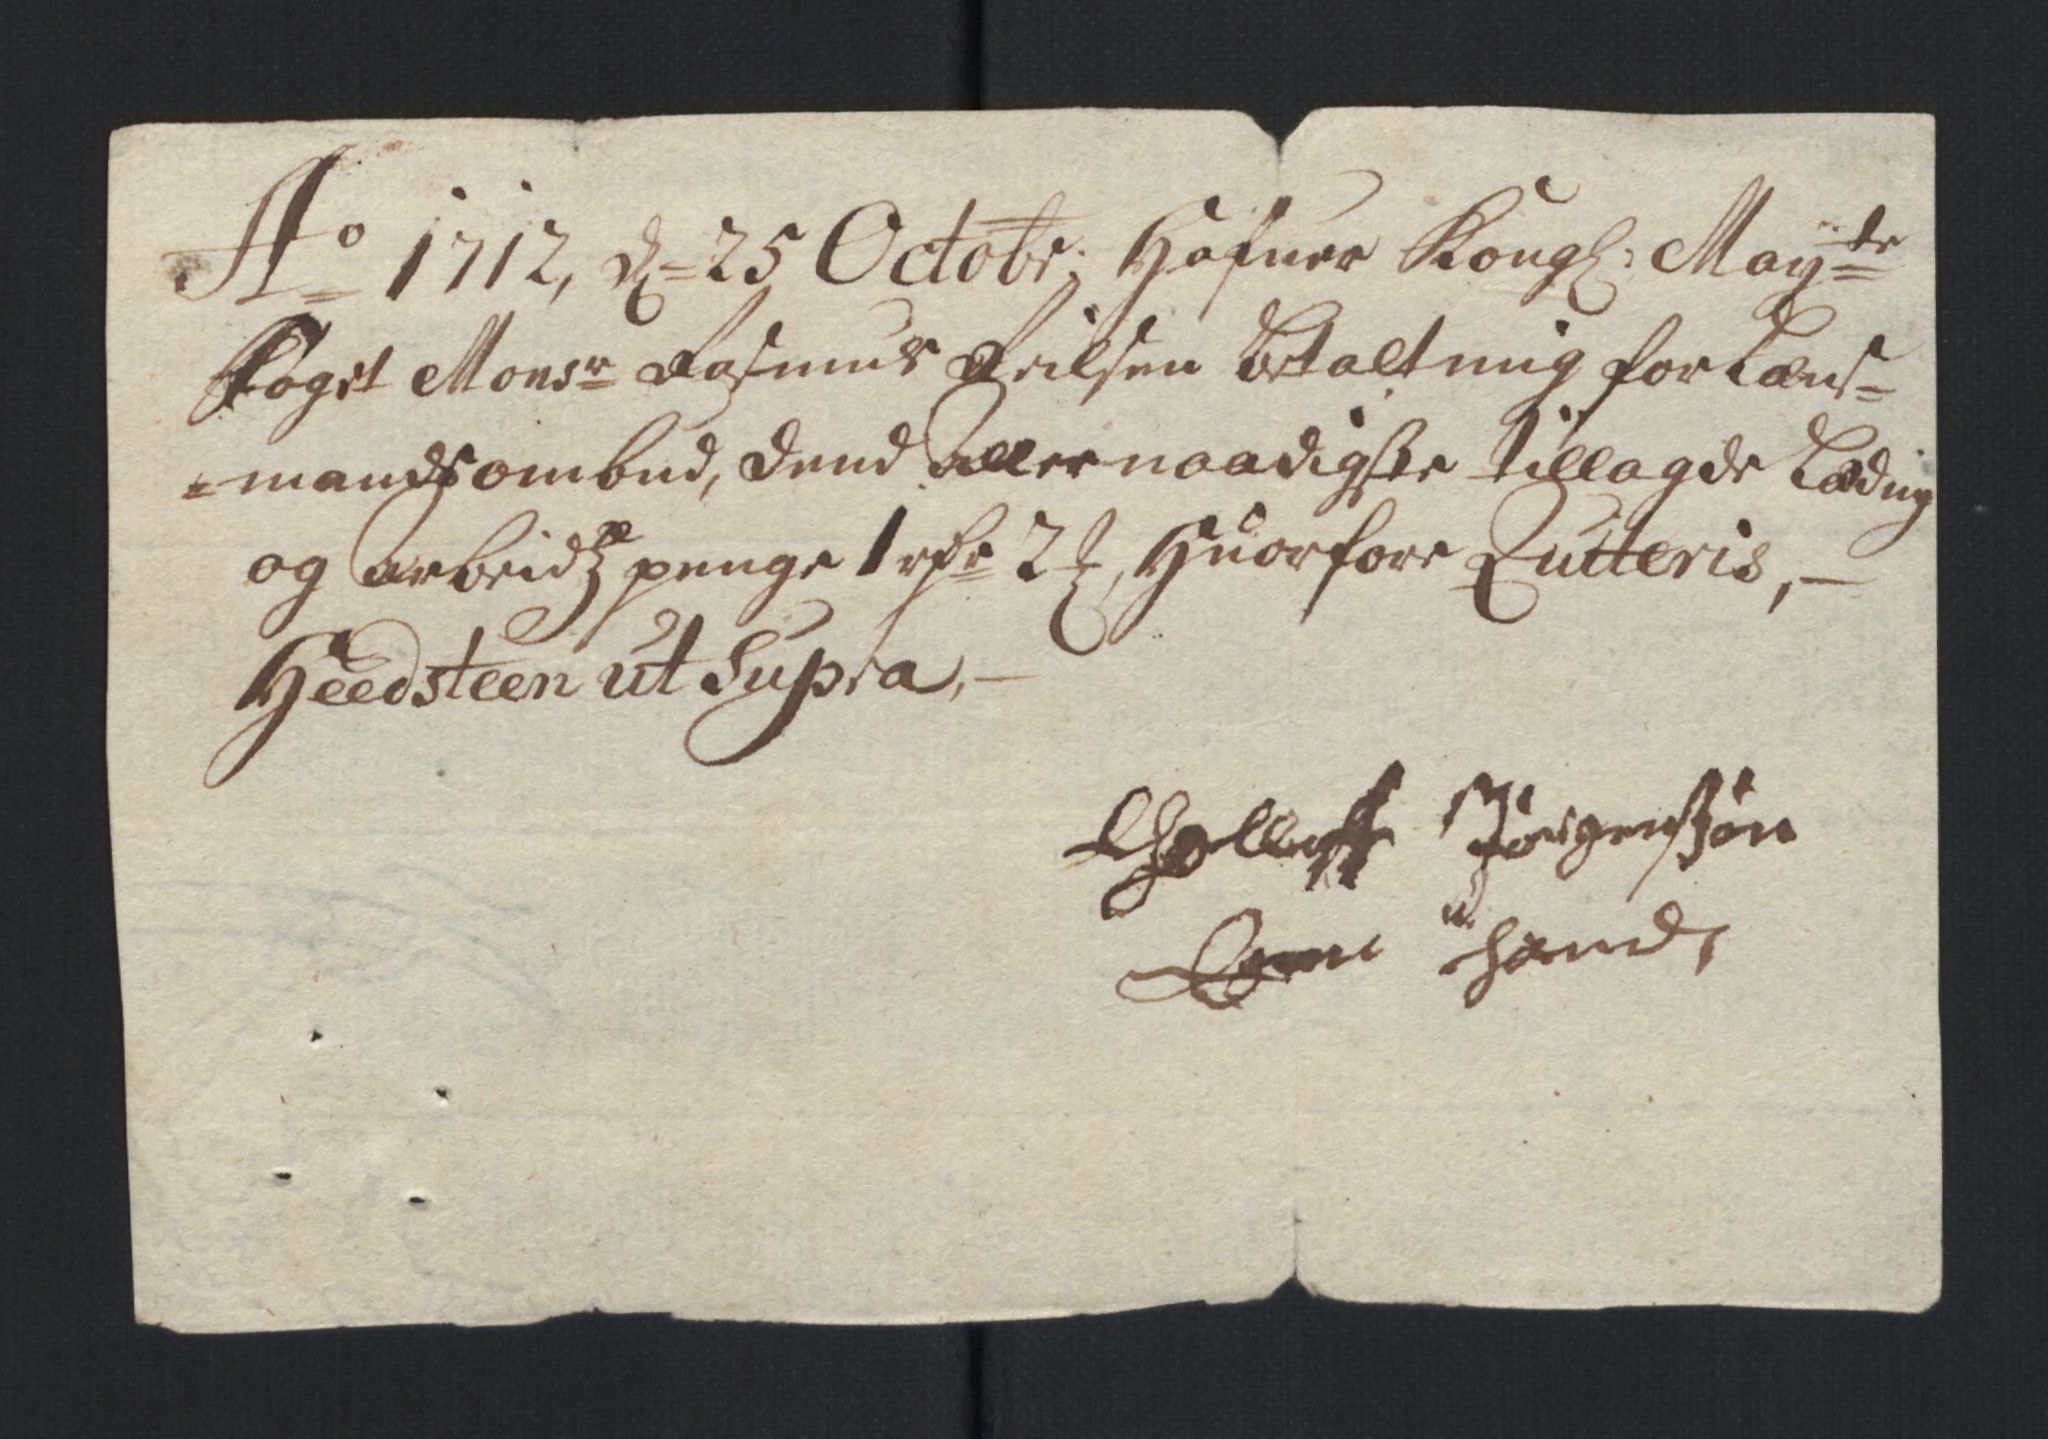 Ao 1712, d. 25 Octobr: Hafuer Kongl: Mayts
Foget Monsr Rasmus Neilsen betalt mig for Læns=
=mands ombud, dend aller naadigste tillagde Læding
og arbeidtz penge 1 rdr 2 ß, Huorfore Quitteris, —
Heedsteen ut Supra, —
Tholleff Jørgenssøn
Egen hand,